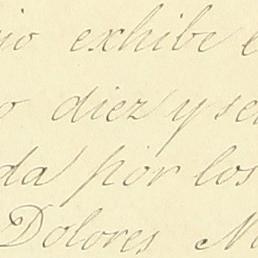 jo exhibe e
o diez y se
da por los
Dolores M